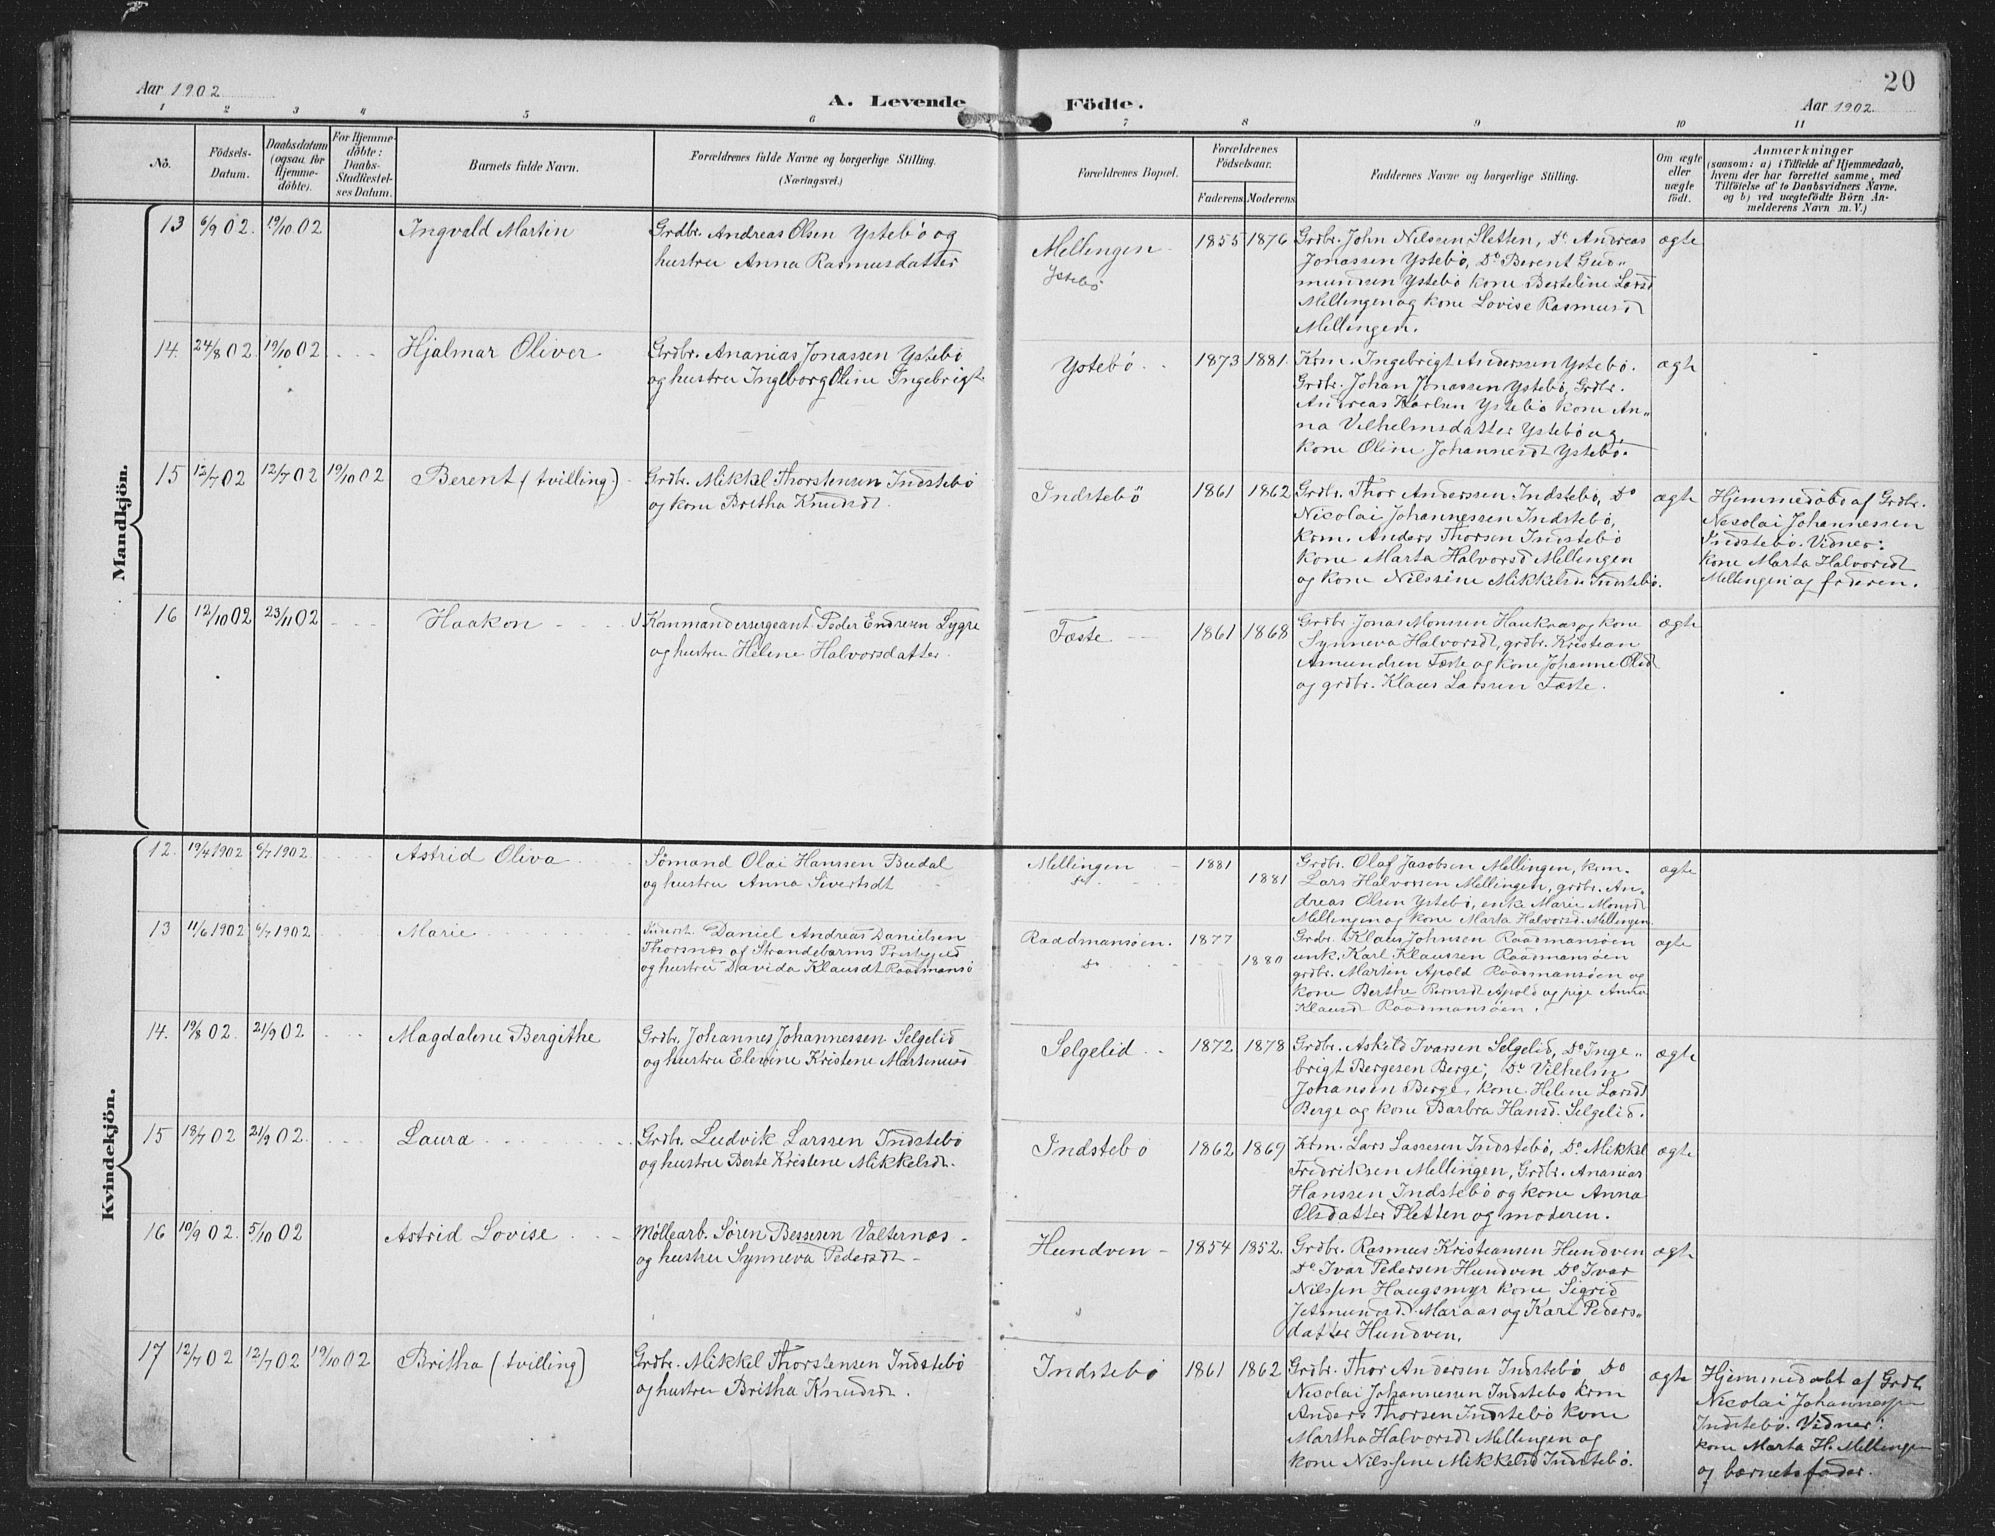 20
Aar 1902
A. Levende Födte.
Aar 1902.
1 2 3 4 5 6 7 8 9 10 11
No.
Födsels-
Datum.
Daabsdatum
(ogsaa for
Hjemme-
döbte).
For Hjemme-
döbte:
Daabs-
Stadfæstel-
ses Datum.
Barnets fulde Navn.
Forældrenes fulde Navne og borgerlige Stilling.
(Næringsvei.)
Forældrenes Bopæl.
Forældrenes
Födselsaar.
Faderens Moderens
Faddernes Navne og borgerlige Stilling.
Om ægte
eller
uægte
födt.
Anmærkninger
(saasom: a) i Tilfælde af Hjemmedaab,
hvem der har forrettet samme, med
Tilföielse af to Daabsvidners Navne,
og b) ved uægtefödte Börn An-
melderens Navn m. V.)
Mandkjön.
13 6/9 02. 19/10 02 Ingvald Martin
Grdbr. Andreas Olsen Ystebö og
hustru Anna Rasmusdatter
Mellingen
Ystebö
1855 1876
Grdbr. John Nilssen Sletten, Do Andreas
Jonassen Ystebö, Do Berent Gud„
mundsen Ystebö kone Berteline Larsd
Mellingen og kone Lovise Rasmusd
Mellingen.
ægte
14. 24/8 02 19/10 02 Hjalmar Oliver
Grdbr. Ananias Jonassen Ystebö
og hustru Ingeborg Oline Ingebrigt
Ystebö
1873 1881
Krm. Ingebrigt Anderssen Ystebö.
Grdbr. Johan Jonassen Ystebö, Grdbr.
Andreas Karlsen Ystebö kone An„
na Vilhelmsdatter Ystebö og
kone Oline Johannesdt Ystebö.
ægte
15 12/7 02 12/7 02 19/10 02 Berent (tvilling)
Grdbr. Mikkel Thorstensen Indstebö
og kone Britha Knudsdt.
Indstebö
1861 1862
Grdbr. Thor Anderssen Indstebö, Do
Nicolai Johannessen Indstebö,
Krm. Anders Thorsen Indstebö
kone Marta Halvorsd Mellingen
og kone Nilssine Mikkelsd Indstebö.
ægte
Hjemmedöbt af Grdbr.
Nicolai Johannessen
Indstebö. Vidner:
kone Marta Halvorsdt
Mellingen og faderen.
16 12/10 02 23/11 02 Haakon
Kommandersergeant Peder Endresen Sygre
og hustru Helene Halvorsdatter.
Tæste
1861 1868
Grdbr Jonas Monsen Haukaas og kone
Synneva Halvorsdt, grdbr. Kristian
Amundsen Tæste og kone Johanne Olsd
og grdbr. Klaus Larssen Tæste.
ægte
Kvindekjön.
12. 19/4 1902 6/7 1902 Astrid Oliva
Sömand Olai Hanssen Budal
og hustru Anna Sivertsdt
Mellingen
do
1881
1881
Grdbr. Olaf Jacobsen Mellingen, krm.
Lars Halvorsen Mellingen, grdbr. An„
dreas Olsen Ystebö, enke Marie Monsdt
Mellingen og kone Marta Halvorsd. Mellingen
ægte
13 11/6 1902 6/7 1902 Marie
Daniel Andreas Danielsen
Thorsnæs af Strandebarms Prestegjeld
og hustru Davida Klausdt Raadmansö
Raadmansöen.
Do
1877
1880
Grdbr. Klaus Johnsen Raadmansöen
unk. Karl Klaussen Raadmansöen
grdbr. Martin Apold Raadmansöen og
kone Berthe Berntsdt Apold og pige Anna
Klausdt Raadmansöen.
ægte
14. 19/8 02. 21/9 02 Magdalene Bergithe
Grdbr. Johannes Johannessen Selgelid
og hustru Elevine Kristene Martinusd
Selgelid
1872 1878
Grdbr. Askild Ivarsen Selgelid, Do Inge„
brigt Bergesen Berge, Do Vilhelm
Johansen Berge, kone Helene Larsdt
Berge og kone Barbra Hansd. Selgelid.
ægte
15 18/7 02 21/9 02. Laura
Grdbr. Ludvik Larssen Indstebö
og hustru Berte Kristene Mikkelsdt.
Indstebö
1862 1869
Krm. Lars Lassesen Indstebö, Do Mikkel
Fredriksen Mellingen, Grdbr. Ananias
Hanssen Indstebö og kone Anna
Olsdatter Sletten og moderen.
ægte
16 10/9 02. 5/10 02 Astrid Lovise
Möllearb. Sören Bessesen Valternæs
og hustru Synneva Pedersdt
Hundven
1854 1852.
Grdbr. Rasmus Kristiansen Hundven
Do Ivar Pedersen Hundven Do Ivar
Nilssen Haugsmyr kone Sigrid
Jetmundsd. Maraas og Kari Peders„
datter Hundven.
ægte
17 12/7 02 12/7 02 19/10 02 Britha (tvilling)
Grdbr. Mikkel Thorstensen Indstebö
og hustru Britha Knudsdt.
Indstebö
1861 1862
Grdbr. Thor Andersen Indstebö Do
Nicolai Johannesen Indstebö krm
Anders Thorsen Indstebö kone
Martha Halvorsdt Mellingen og
kone Nilssine Mikkelsd Indstebö.
ægte
Hjemmedöbt af Grdbr.
Nicolai Johannessen
Indstebö. Vidner:
kone Marta H. Mellingen
og barnets fader.